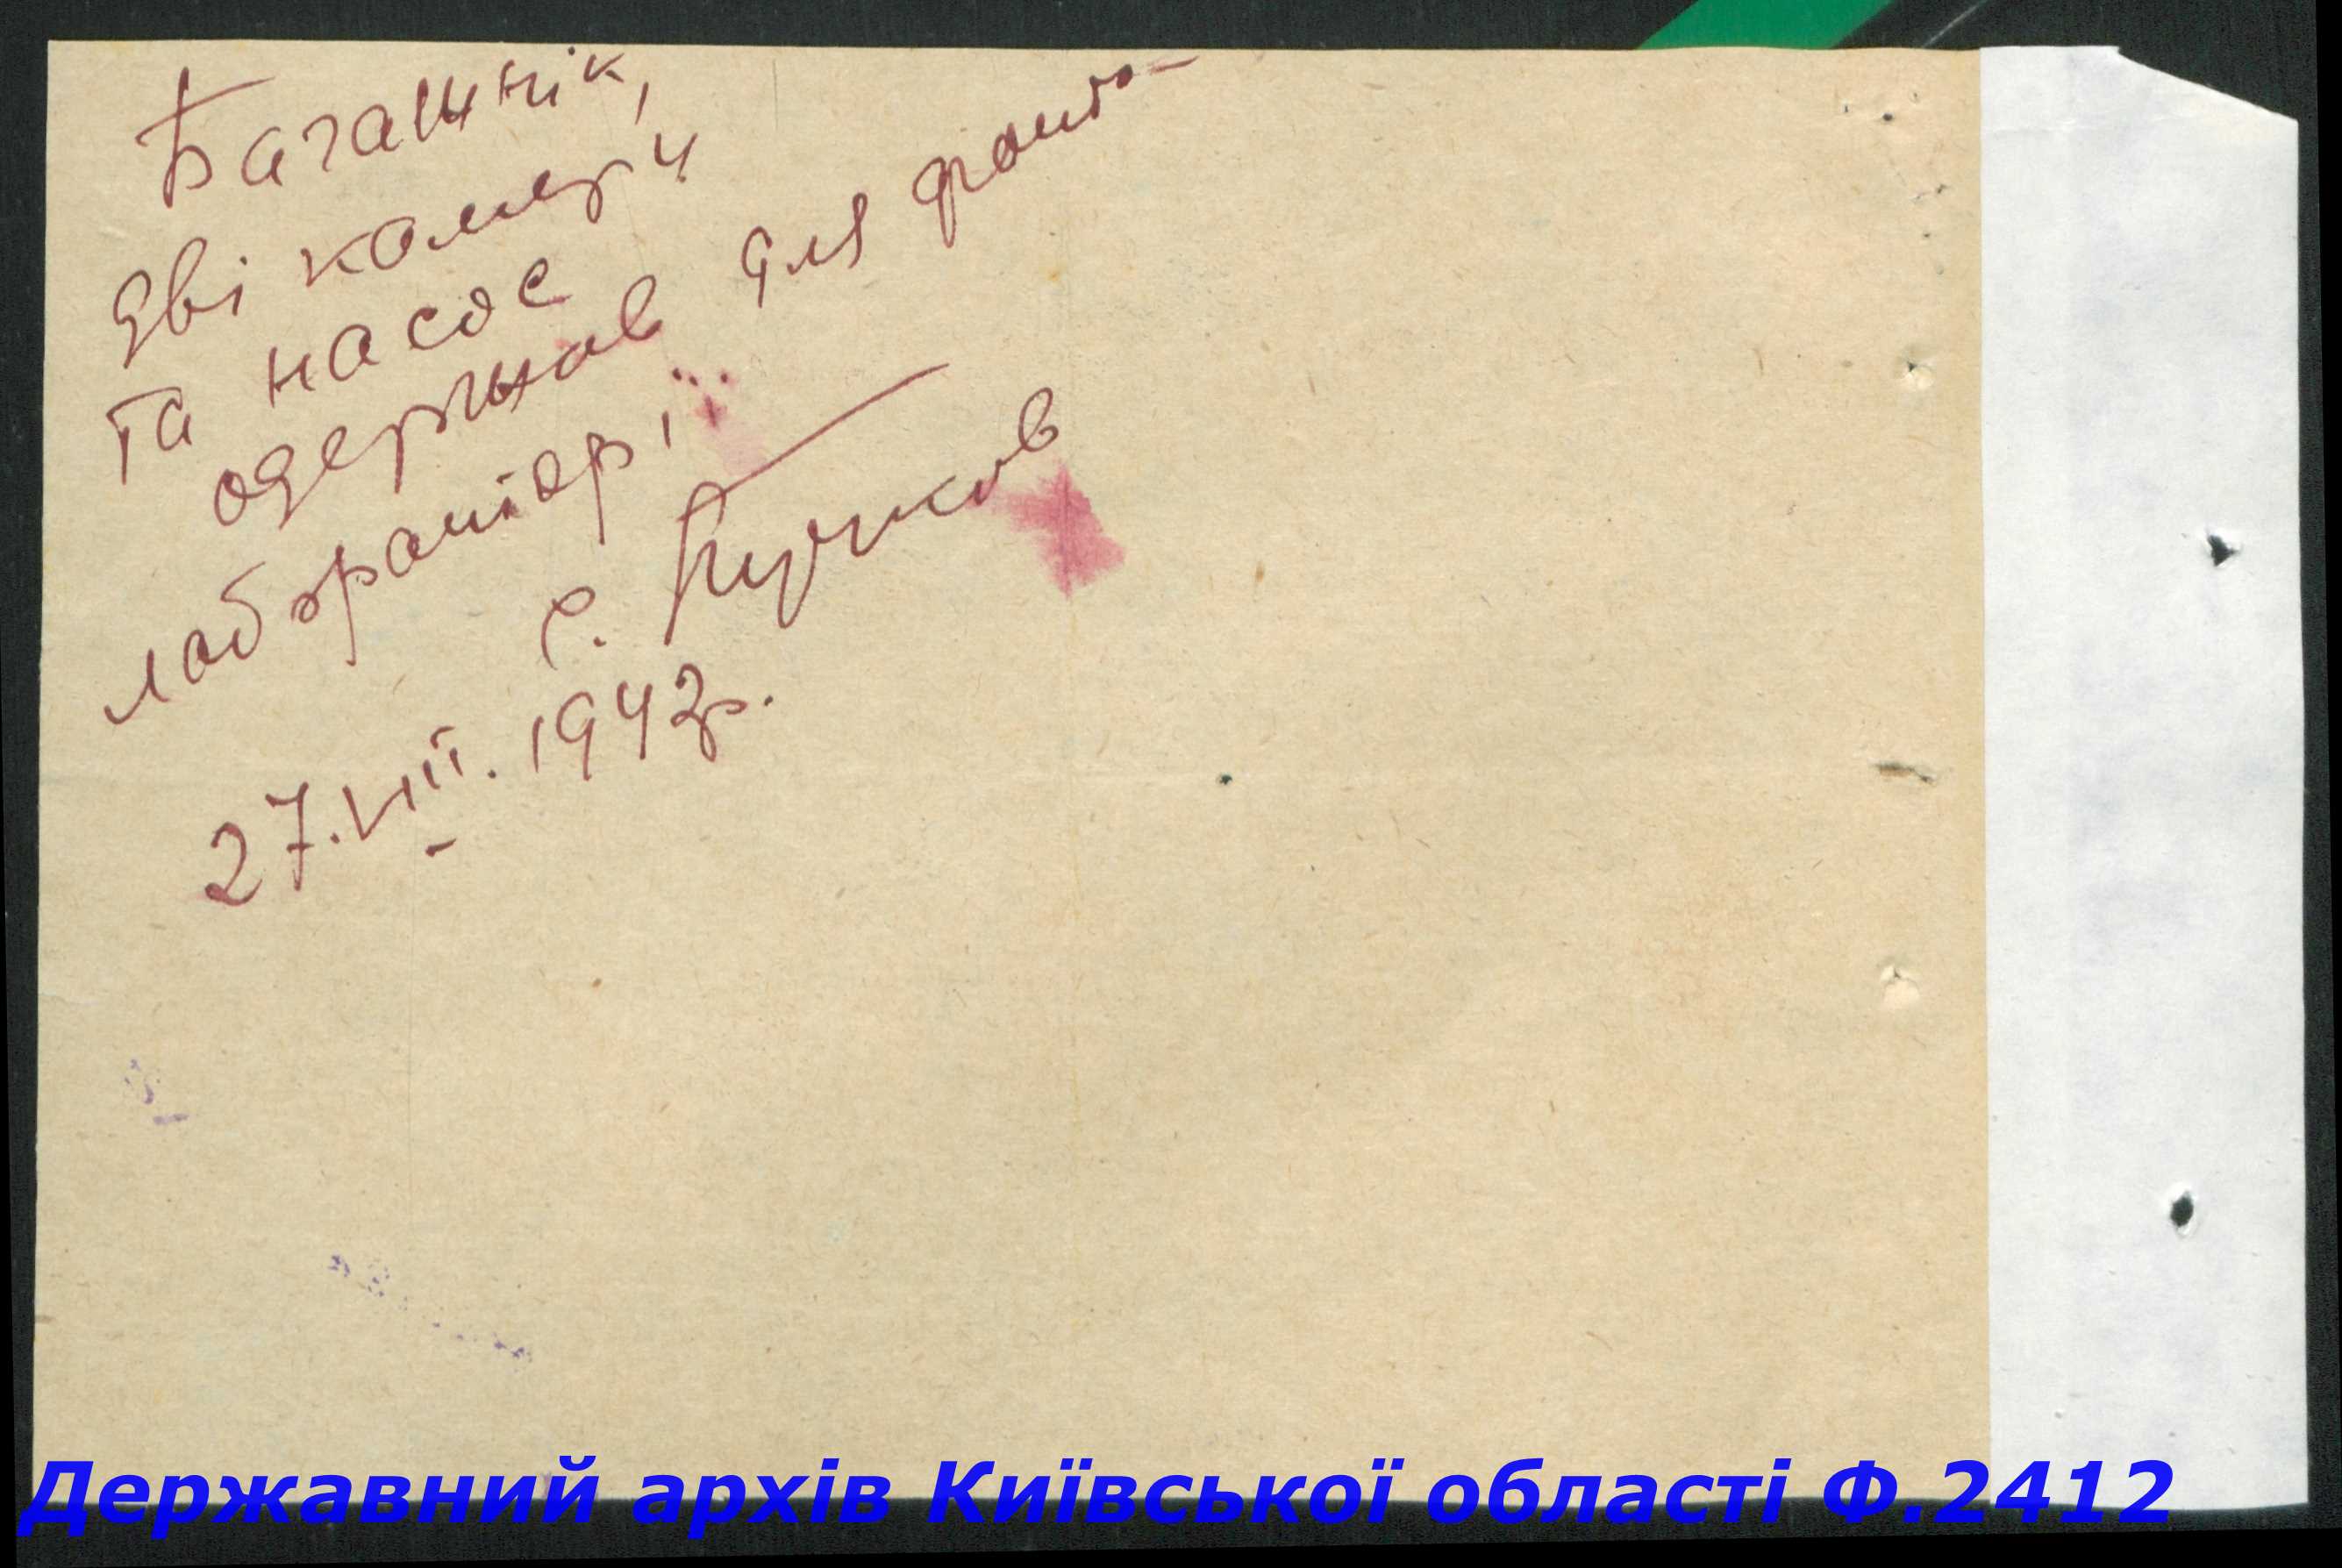 Багажнік,
дві камери
та насос
одержав для фото-
лабораторії
С. Пучков
27.VIII.1942р.
Державний архів Київської області Ф.2412